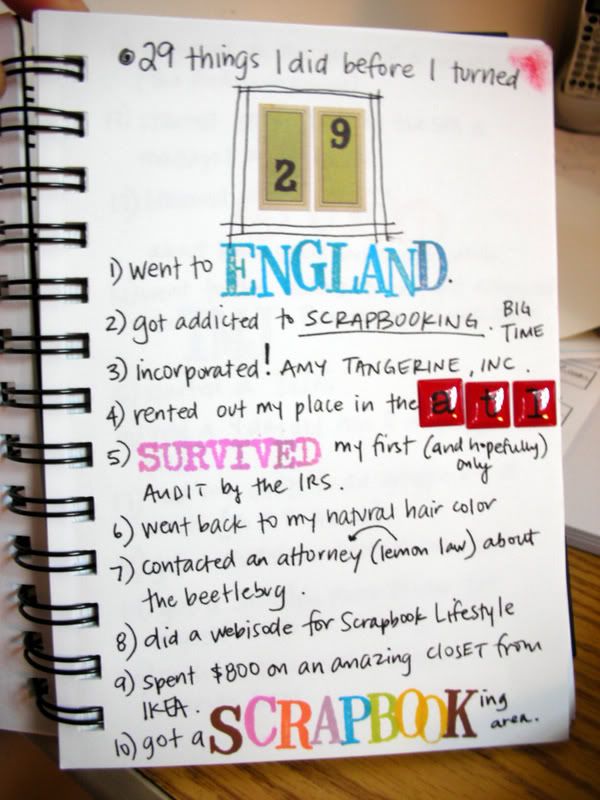 29 things I did before I turned
2 9
1) went to ENGLAND.
2) got addicted to SCRAPBOOKING. BIG TIME
3) incorporated! AMY TANGERINE, INC.
4) rented out my place in the atl
5) SURVIVED my first (and hopefully) only
AUDIT by the IRS.
6) went back to my natural hair color
7) contacted an attorney (lemon law) about
the beetlebug.
8) did a webisode for Scrapbook Lifestyle
9) spent $800 on an amazing CLOSET from
IKEA.
10) got a SCRAPBOOKing area.